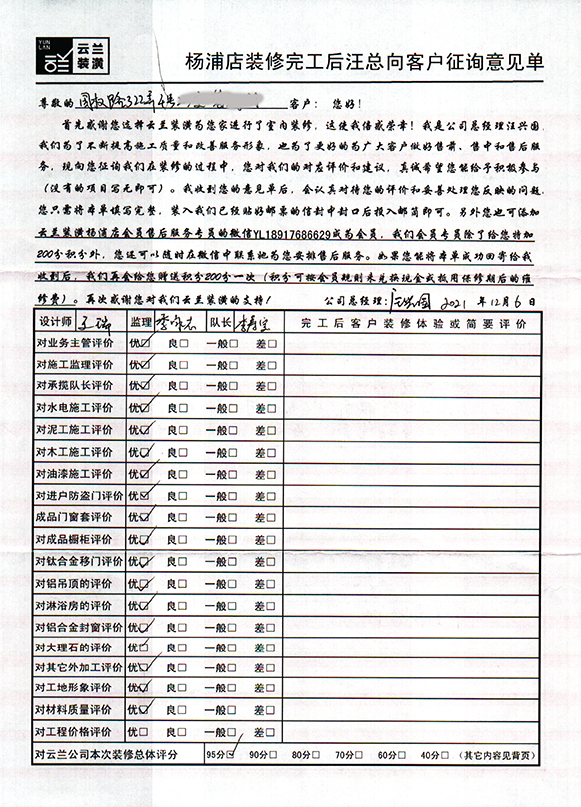 YUN LAN 云兰装潢
杨浦店装修完工后汪总向客户征询意见单
尊敬的 国权路322弄 客户：您好！
首先感谢您选择云兰装潢为您家进行了室内装修，这使我倍感荣幸！我是公司总经理汪兴国，
我们为了不断提高施工质量和改善服务形象，也为了更好的为广大客户做好售前、售中和售后服
务，现向您征询我们在装修的过程中，您对我们的对应评价和建议，真诚希望您能给予积极参与
（没有的项目写无即可）。我收到您的意见单后，会认真对待您的评价和妥善处理您反映的问题，
您只需将本单填写完整，装入我们已经贴好邮票的信封中封口后投入邮筒即可。另外您也可添加
云兰装潢杨浦店会员售后服务专员的微信YL18917686629成为会员，我们会员专员除了给您特加
200分积分外，您还可以随时在微信中联系她为您安排售后服务。如果您能将本单成功回寄给我
收到后，我们再会给您赠送积分200分一次（积分可按会员规则来兑换现金或抵用保修期后的维
修费）。再次感谢您对我们云兰装潢的支持！ 公司总经理：汪兴国 2021 年 12月 6 日
设计师 王瑞 监理 李家志 队长 完工后客户装修体验或简要评价
对业务主管评价 优☑ 良□ 一般□ 差□
对施工监理评价 优☑ 良□ 一般□ 差□
对承揽队长评价 优☑ 良□ 一般□ 差□
对水电施工评价 优☑ 良□ 一般□ 差□
对泥工施工评价 优☑ 良□ 一般□ 差□
对木工施工评价 优☑ 良□ 一般□ 差□
对油漆施工评价 优☑ 良□ 一般□ 差□
对进户防盗门评价 优☑ 良□ 一般□ 差□
成品门窗套评价 优☑ 良□ 一般□ 差□
对成品橱柜评价 优☑ 良□ 一般□ 差□
对钛合金移门评价 优☑ 良□ 一般□ 差□
对铝吊顶的评价 优☑ 良□ 一般□ 差□
对淋浴房的评价 优☑ 良□ 一般□ 差□
对铝合金封窗评价 优☑ 良□ 一般□ 差□
对大理石的评价 优□ 良□ 一般□ 差□
对其它外加工评价 优☑ 良□ 一般□ 差□
对工地形象评价 优☑ 良□ 一般□ 差□
对材料质量评价 优☑ 良□ 一般□ 差□
对工程价格评价 优□ 良□ 一般□ 差□
对云兰公司本次装修总体评分 95分☑ 90分□ 80分□ 70分□ 60分□ 40分□ （其它内容见背页）